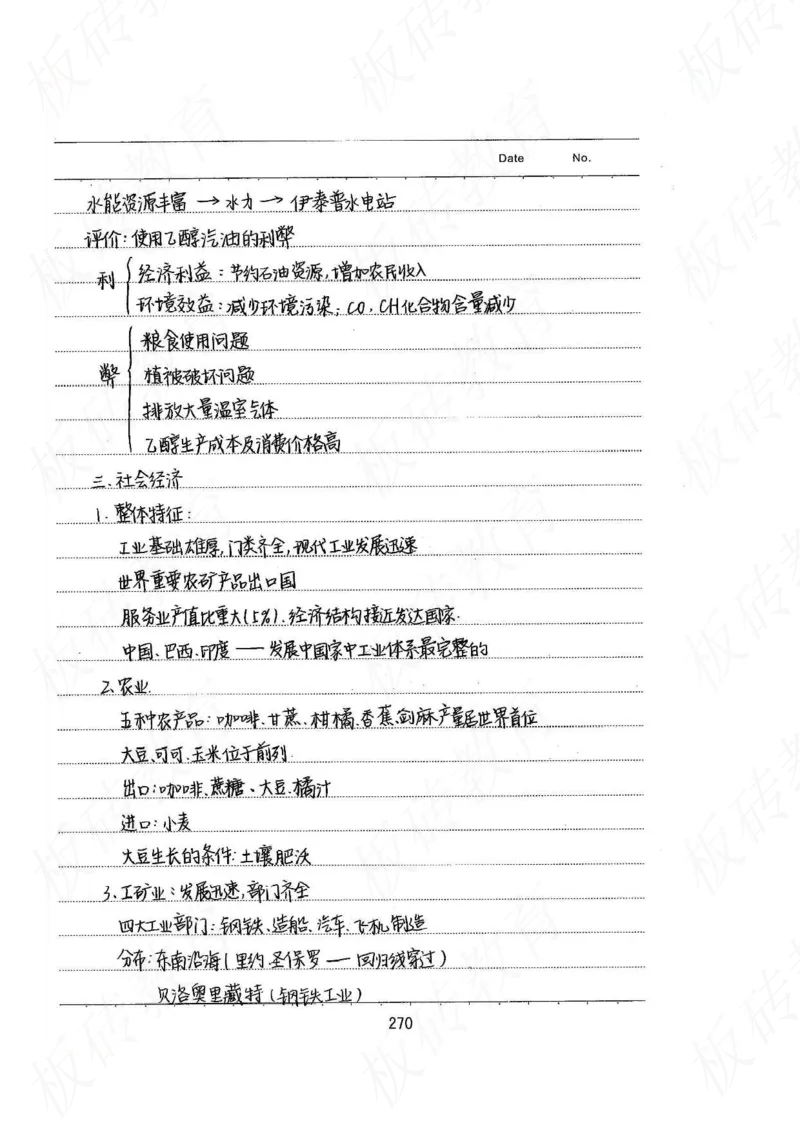 Date No.
水能资源丰富 → 水力 → 伊泰普水电站
评价:使用乙醇汽油的利弊
利 { 经济利益:节约石油资源,增加农民收入
环境效益:减少环境污染; CO、CH化合物含量减少
粮食使用问题
弊 { 植被破坏问题
排放大量温室气体
乙醇生产成本及消费价格高
三.社会经济
1.整体特征:
工业基础雄厚,门类齐全,现代工业发展迅速
世界重要农矿产品出口国
服务业产值比重大(5%).经济结构接近发达国家.
中国、巴西.印度 — 发展中国家中工业体系最完整的
2.农业.
五种农产品:咖啡.甘蔗、柑橘.香蕉.剑麻产量居世界首位
大豆.可可.玉米位于前列.
出口:咖啡.蔗糖、大豆.橘汁
进口:小麦
大豆生长的条件:土壤肥沃
3.工矿业:发展迅速,部门齐全
四大工业部门:钢铁、造船、汽车、飞机制造
分布:东南沿海(里约.圣保罗 — 回归线穿过)
贝洛奥里藏特(钢铁工业)
270
板砖教育